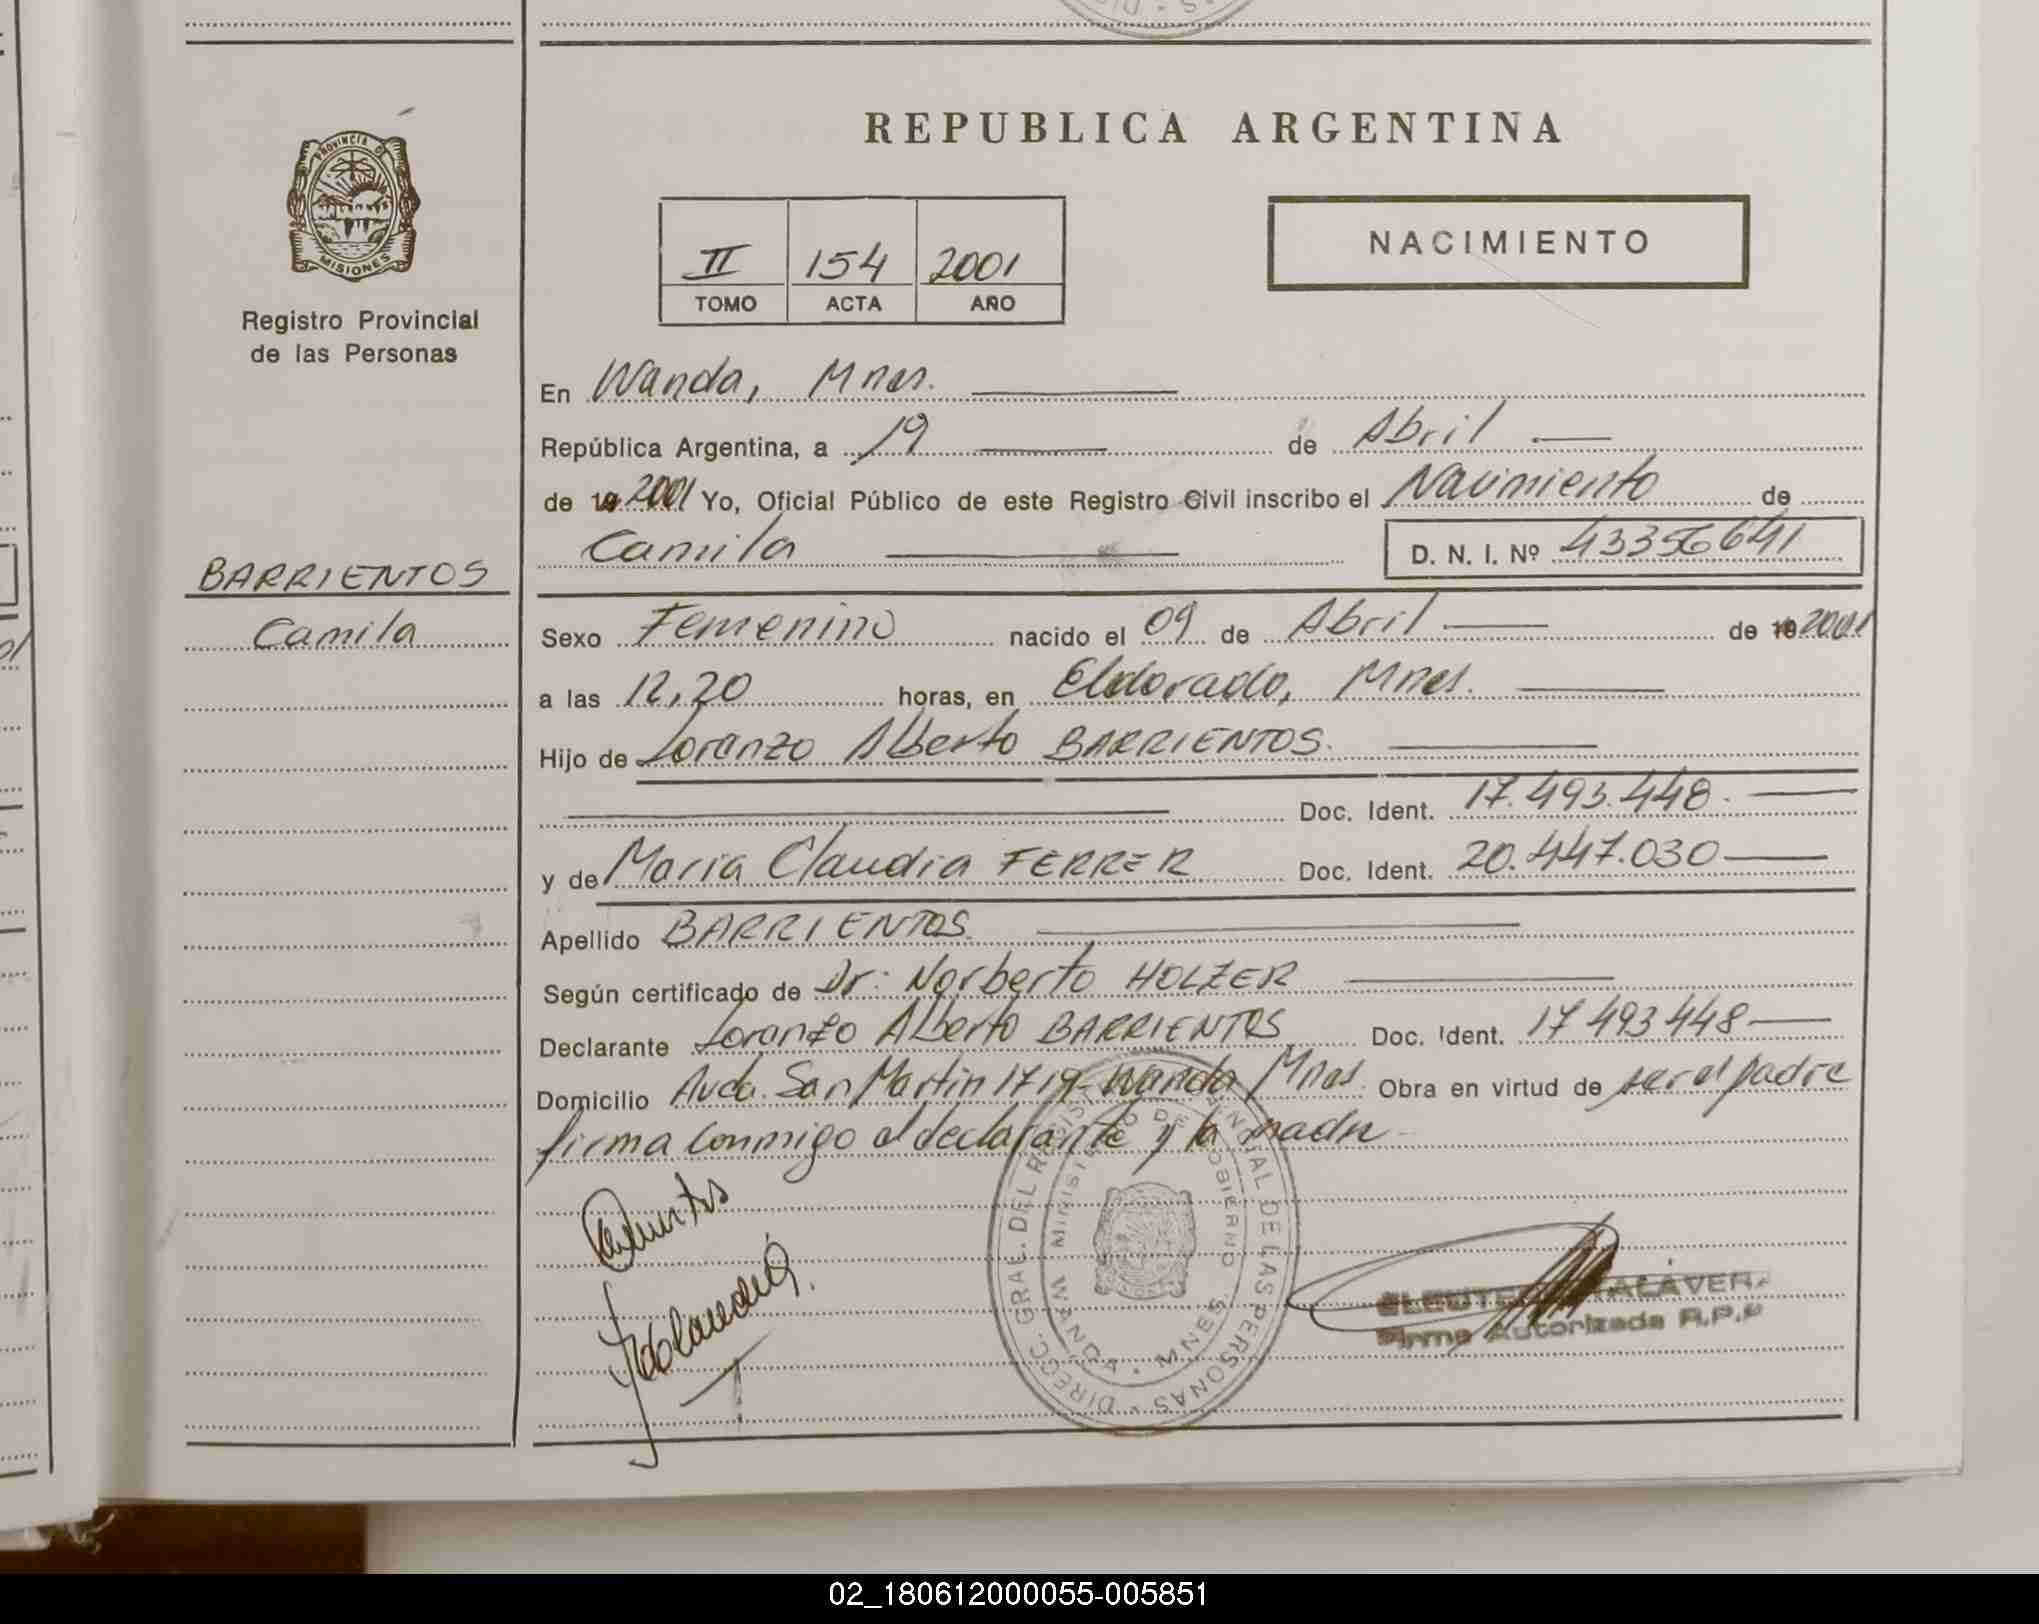 REPUBLICA ARGENTINA
PROVINCIA DE MISIONES
Registro Provincial
de las Personas
BARRIENTOS
Camila
II 154 2001
TOMO ACTA AÑO
NACIMIENTO
En Wanda, Mnes.
República Argentina, a 19 de Abril
de 19 2001 Yo, Oficial Público de este Registro Civil inscribo el Nacimiento de
Camila D. N. I. Nº 43356641
Sexo Femenino nacido el 09 de Abril de 19 2001
a las 12,20 horas, en Eldorado, Mnes.
Hijo de Loranzo Alberto BARRIENTOS.
Doc. Ident. 17.493.448.
y de Maria Claudia FERRER Doc. Ident. 20.447.030
Apellido BARRIENTOS
Según certificado de Dr: Norberto HOLZER
Declarante Loranzo Alberto BARRIENTOS Doc. Ident. 17 493 448
Domicilio Avda. San Martin 1719 - Wanda Mnes. Obra en virtud de ser el padre
firma conmigo el declarante y la madre
DIRECC. GRAL. DEL REGISTRO PROVINCIAL DE LAS PERSONAS
MINISTERIO DE GOBIERNO
WANDA • MNES.
Firma Autorizada R.P.P
02_180612000055-005851